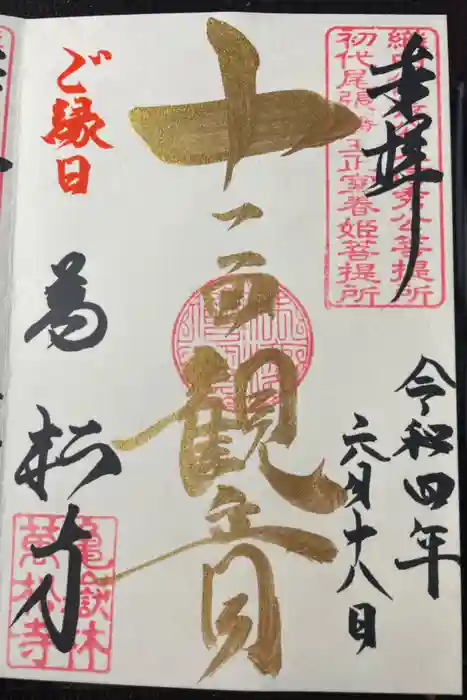 奉拝
秀公菩提所
初代尾張藩主正室春姫菩提所
令和四年
六月十八日
十一面観音
ご縁日
萬松寺
亀嶽林
萬松寺